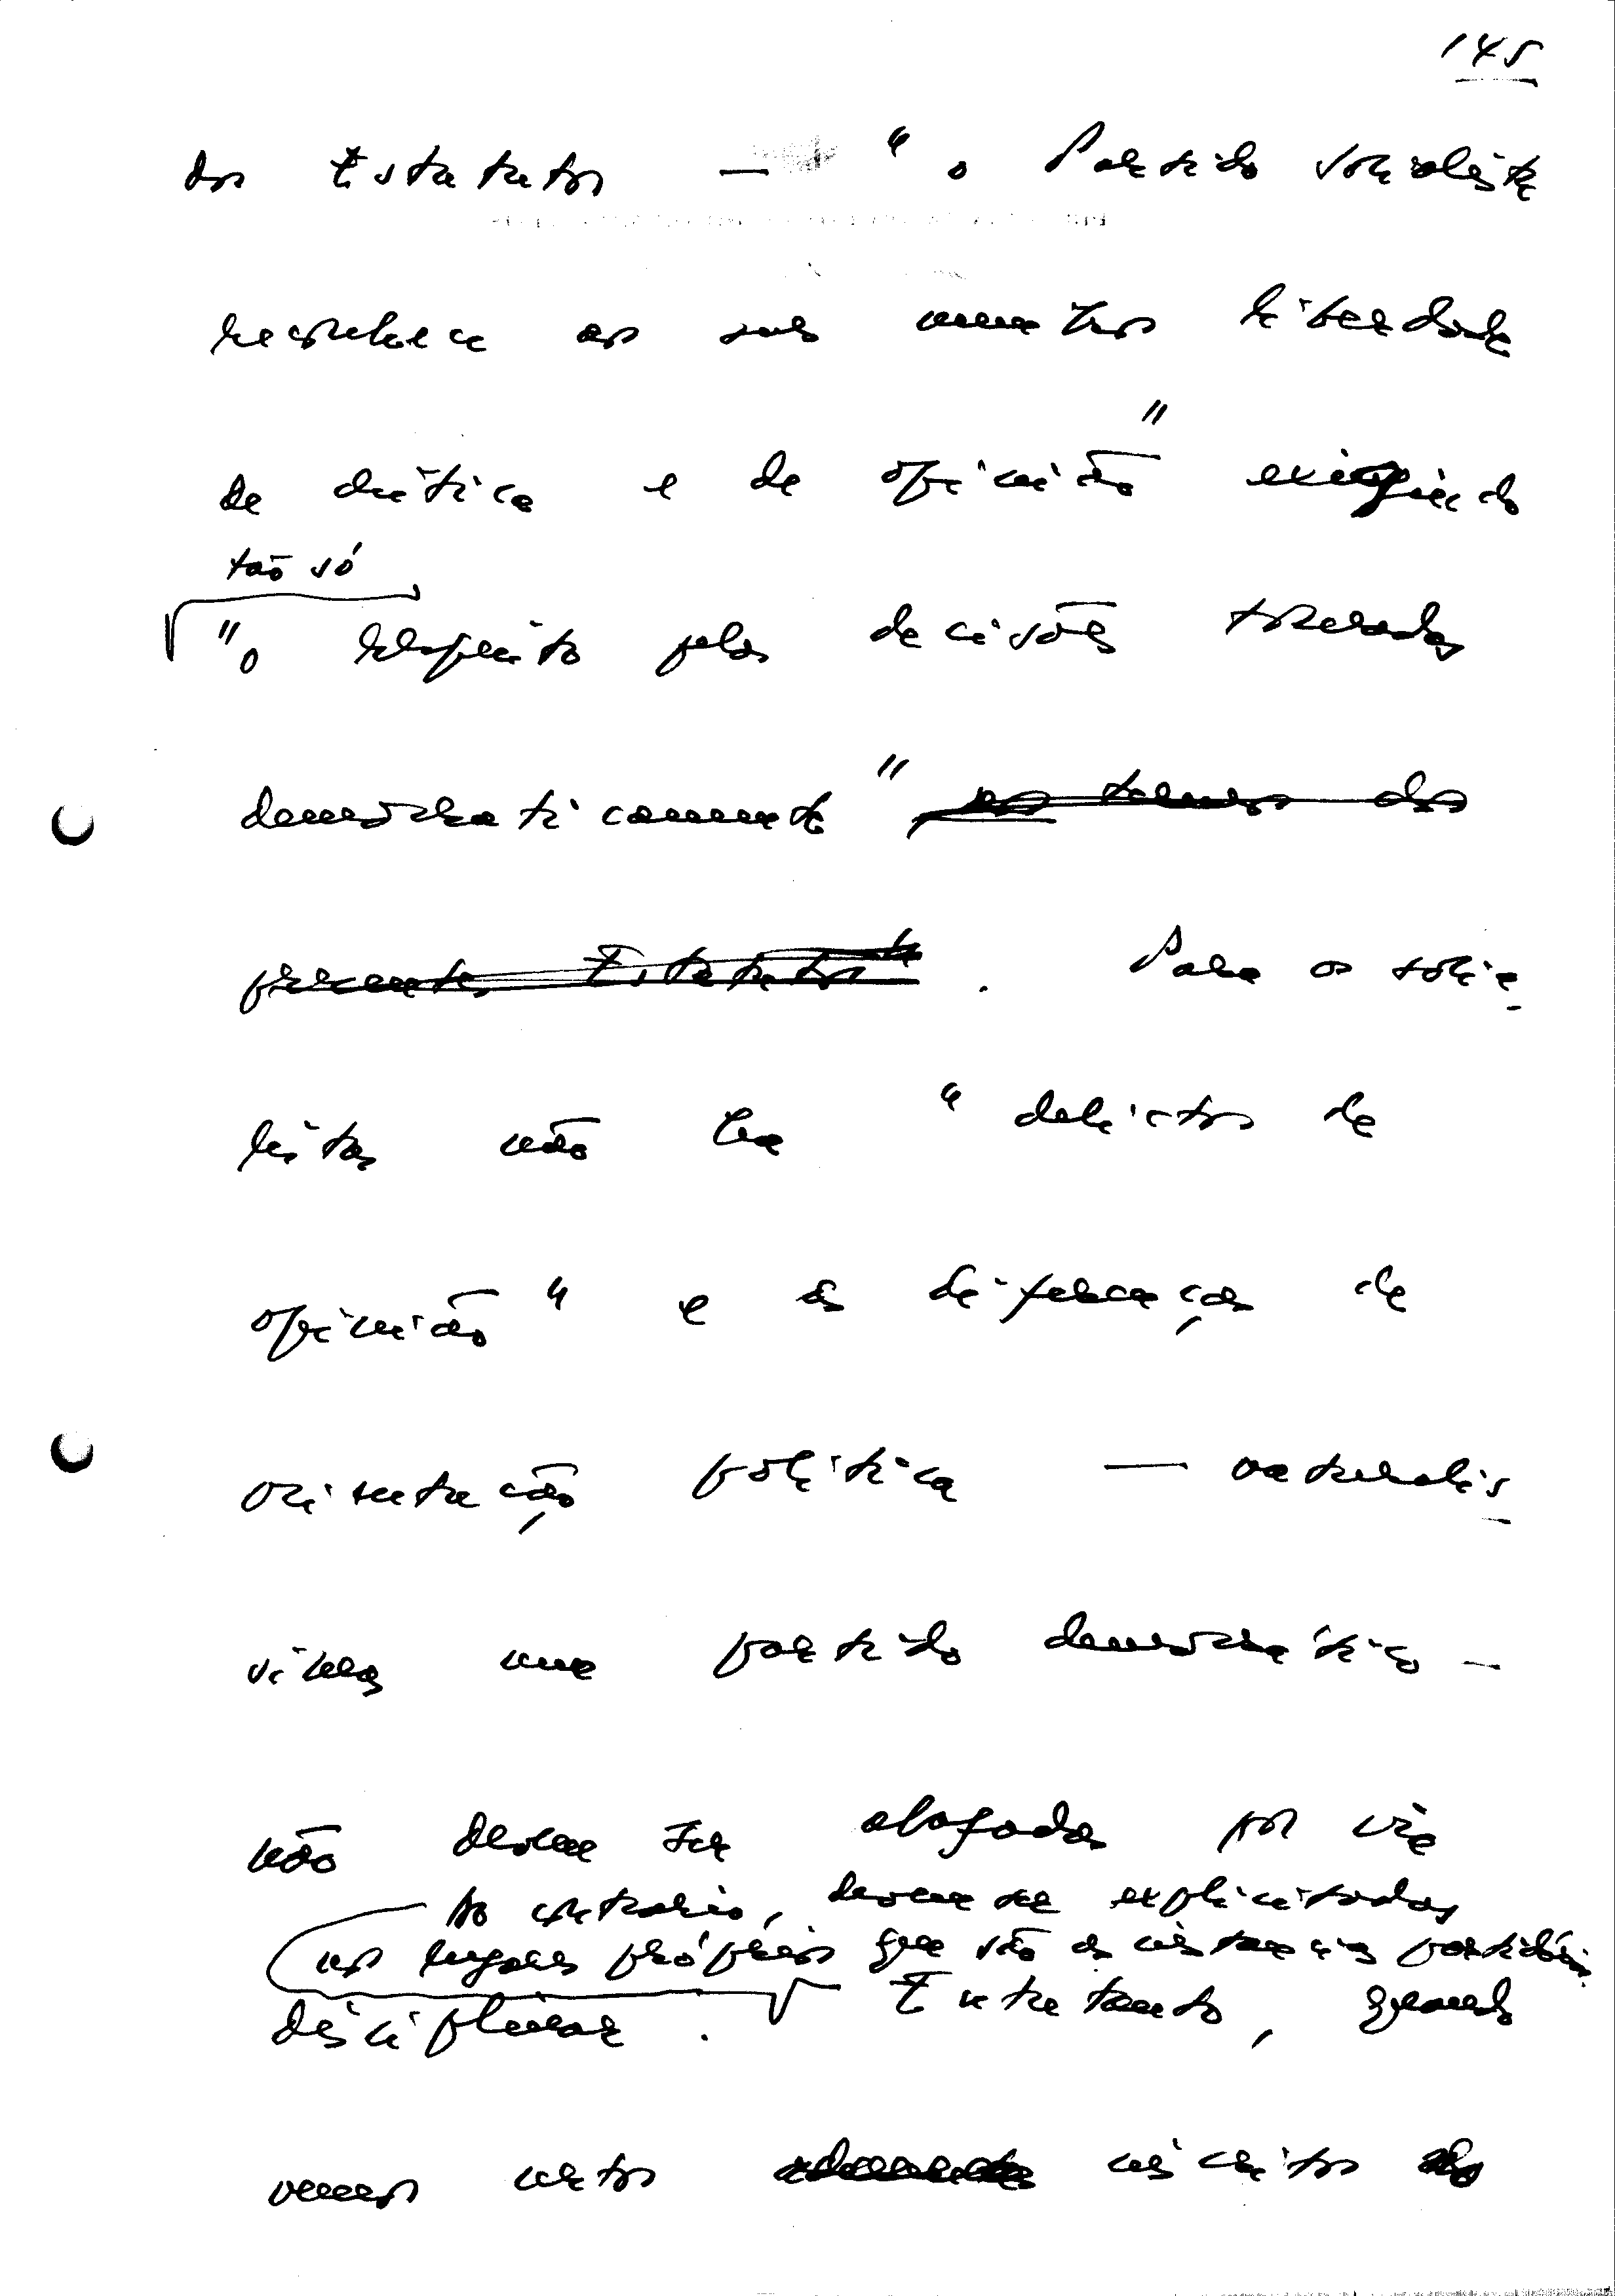 145
dos Estatutos — "o Partido Socialista
reconhece aos seus membros liberdade
de crítica e de opinião" exigindo
tão só
"o respeito pelas decisões tomadas
democraticamente" nos termos dos
presentes Estatutos". Para os socia-
listas não há "delictos de
opinião" e as diferenças de
orientação política — naturalís-
simas num partido democrático —
não devem ser abafadas por via
Ao contrário, devem ser explicitadas
nos lugares próprios que são as instâncias partidárias.
disciplinar. Entretanto, quando
menos certos inscritos